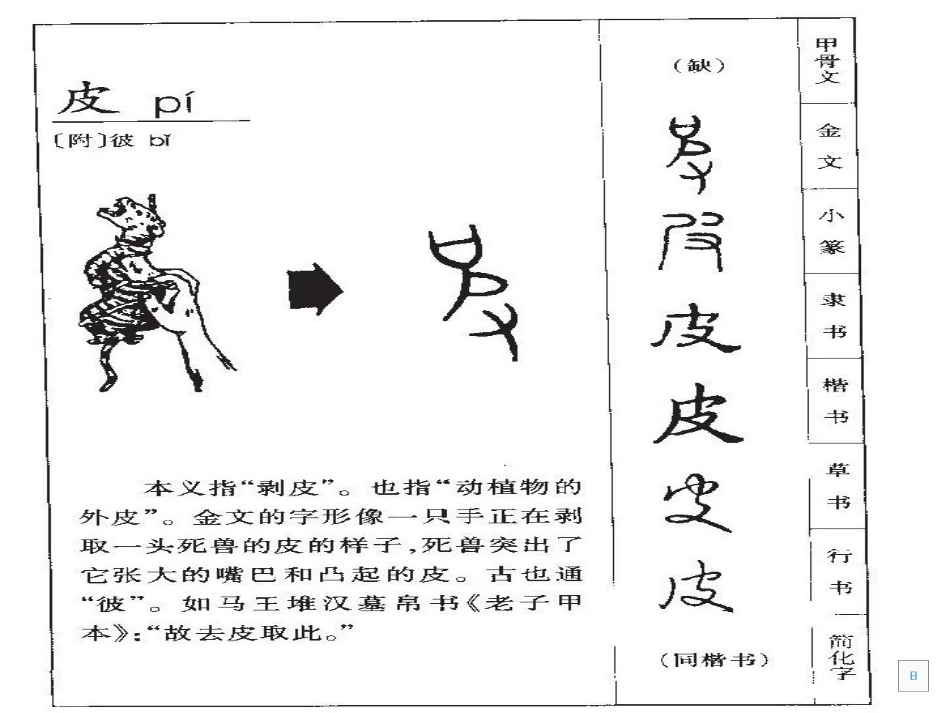 皮 pí
〔附〕彼 bǐ
本义指“剥皮”。也指“动植物的
外皮”。金文的字形像一只手正在剥
取一头死兽的皮的样子,死兽突出了
它张大的嘴巴和凸起的皮。古也通
“彼”。如马王堆汉墓帛书《老子甲
本》:“故去皮取此。”
(缺)
皮
皮
皮
皮
皮
皮
(同楷书)
甲骨文
金文
小篆
隶书
楷书
草书
行书
简化字
8